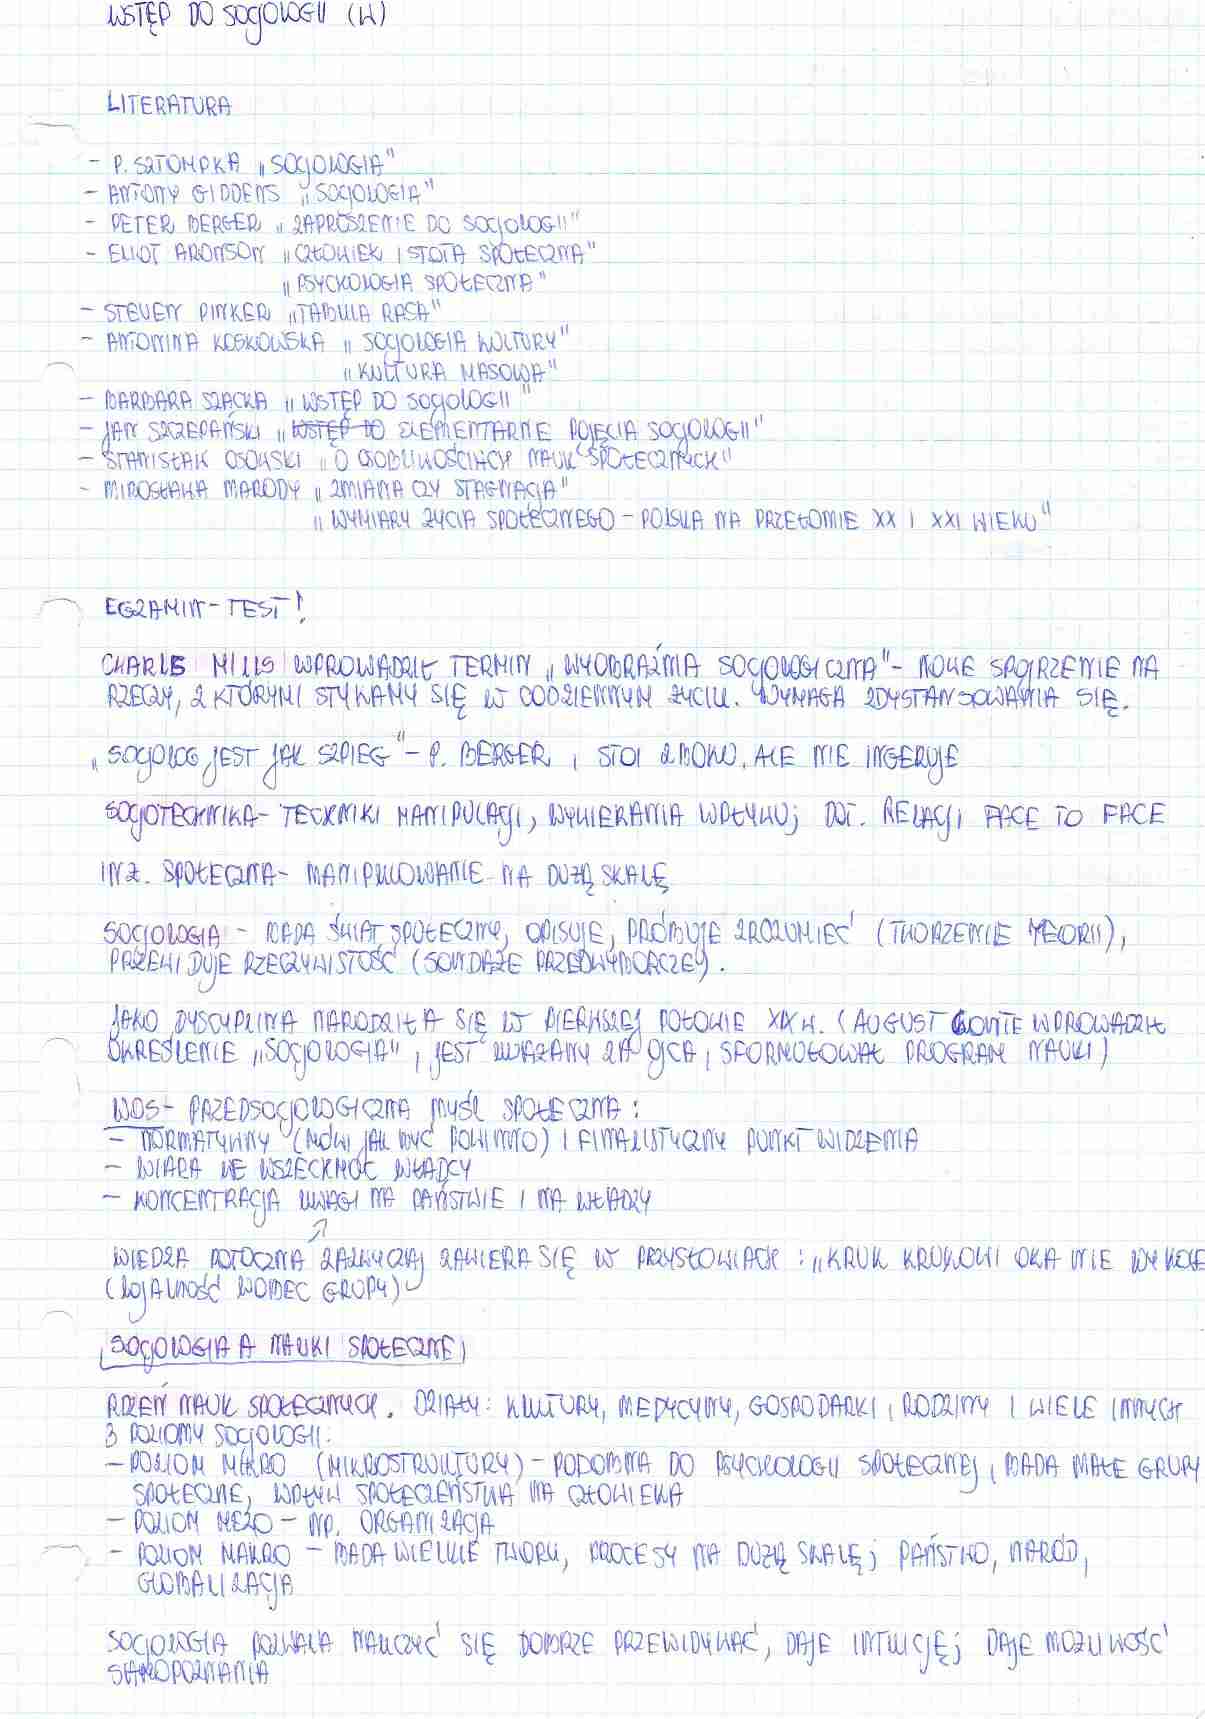 WSTĘP DO SOCJOLOGII (W)
LITERATURA
- P. SZTOMPKA „SOCJOLOGIA"
- ANTONY GIDDENS „SOCJOLOGIA"
- PETER BERGER „ZAPROSZENIE DO SOCJOLOGII"
- ELIOT ARONSON „CZŁOWIEK ISTOTA SPOŁECZNA"
„PSYCHOLOGIA SPOŁECZNA"
- STEVEN PINKER „TABULA RASA"
- ANTONINA KŁOSKOWSKA „SOCJOLOGIA KULTURY"
„KULTURA MASOWA"
- BARBARA SZACKA „WSTĘP DO SOCJOLOGII"
- JAN SZCZEPAŃSKI „WSTĘP DO ELEMENTARNE POJĘCIA SOCJOLOGII"
- STANISŁAW OSOWSKI „O OSOBLIWOŚCIACH NAUK SPOŁECZNYCH"
- MIROSŁAWA MARODY „ZMIANA CZY STAGNACJA"
„WYMIARY ŻYCIA SPOŁECZNEGO - POLSKA NA PRZEŁOMIE XX I XXI WIEKU"
EGZAMIN - TEST!
CHARLES MILLS WPROWADZIŁ TERMIN „WYOBRAŹNIA SOCJOLOGICZNA" - NOWE SPOJRZENIE NA
RZECZY, Z KTÓRYMI STYKAMY SIĘ W CODZIENNYM ŻYCIU. WYMAGA ZDYSTANSOWANIA SIĘ.
„SOCJOLOG JEST JAK SZPIEG" - P. BERGER, STOI Z BOKU, ALE NIE INGERUJE
SOCJOTECHNIKA - TECHNIKI MANIPULACJI, WYWIERANIA WPŁYWU; DOT. RELACJI FACE TO FACE
INŻ. SPOŁECZNA - MANIPULOWANIE NA DUŻĄ SKALĘ
SOCJOLOGIA - BADA ŚWIAT SPOŁECZNY, OPISUJE, PRÓBUJE ZROZUMIEĆ (TWORZENIE TEORII),
PRZEWIDUJE RZECZYWISTOŚĆ (SONDAŻE PRZEDWYBORCZE).
JAKO DYSCYPLINA NARODZIŁA SIĘ W PIERWSZEJ POŁOWIE XIX W. (AUGUST COMTE WPROWADZIŁ
OKREŚLENIE „SOCJOLOGIA", JEST UWAŻANY ZA OJCA, SFORMUŁOWAŁ PROGRAM NAUKI)
WOS - PRZEDSOCJOLOGICZNA MYŚL SPOŁECZNA:
- NORMATYWNY (MÓWI JAK BYĆ POWINNO) I FINALISTYCZNY PUNKT WIDZENIA
- WIARA WE WSZECHMOC WŁADCY
- KONCENTRACJA UWAGI NA PAŃSTWIE I NA WŁADZY
WIEDZA POTOCZNA ZAZWYCZAJ ZAWIERA SIĘ W PRZYSŁOWIACH: „KRUK KRUKOWI OKA NIE WYKOLE
(LOJALNOŚĆ WOBEC GRUPY)
SOCJOLOGIA A NAUKI SPOŁECZNE
RDZEŃ NAUK SPOŁECZNYCH. DZIAŁY: KULTURY, MEDYCYNY, GOSPODARKI, RODZINY I WIELE INNYCH
3 POZIOMY SOCJOLOGII:
- POZIOM MIKRO (MIKROSTRUKTURY) - PODOBNA DO PSYCHOLOGII SPOŁECZNEJ, BADA MAŁE GRUPY
SPOŁECZNE, WPŁYW SPOŁECZEŃSTWA NA CZŁOWIEKA
- POZIOM MEZO - NP. ORGANIZACJA
- POZIOM MAKRO - BADA WIELKIE TWORY, PROCESY NA DUŻĄ SKALĘ; PAŃSTWO, NARÓD,
GLOBALIZACJA
SOCJOLOGIA POZWALA NAUCZYĆ SIĘ DOBRZE PRZEWIDYWAĆ, DAJE INTUICJĘ; DAJE MOŻLIWOŚĆ
SAMOPOZNANIA